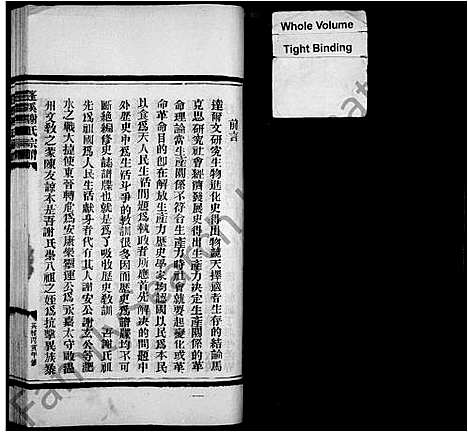 Whole Volume
Tight Binding
前言
達爾文研究生物進化史得出物競天擇適者生存的結論馬
克思研究社會經濟發展史得出生產力決定生產關係的革
命理論當生產關係不符合生產力時社會就要起變化或革
命革命目的卽在解放生產力歷史學家均認國以民爲本民
以食爲天人民生活問題爲執政者所應首先解決的問題中
外歷史中爲生活斗爭的教訓很多因而歷史爲譜牒均不可
斷絕編修史誌譜牒也就是爲了吸收歷史教訓 吾謝氏祖
先爲祖國爲人民生活獻身者代有其人謝安公謝玄公等淝
水之戰大捷使東晉轉危爲安康樂靈運公爲永嘉太守啟溫
州文教之業陳友諒本是吾謝氏崇八祖之姪爲抗擊異族
謝氏宗譜